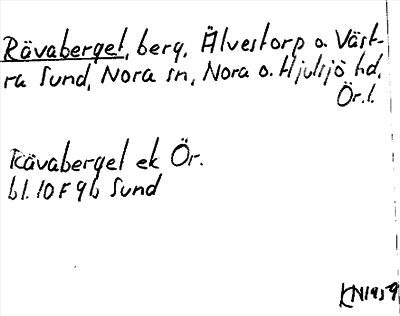 Rävaberget, berg, Älvestorp o. Väst-
ra Sund, Nora sn, Nora o. Hjulsjö hd,
Ör. l.
Rävaberget ek Ör.
bl. 10 F 9b Sund
KN1959